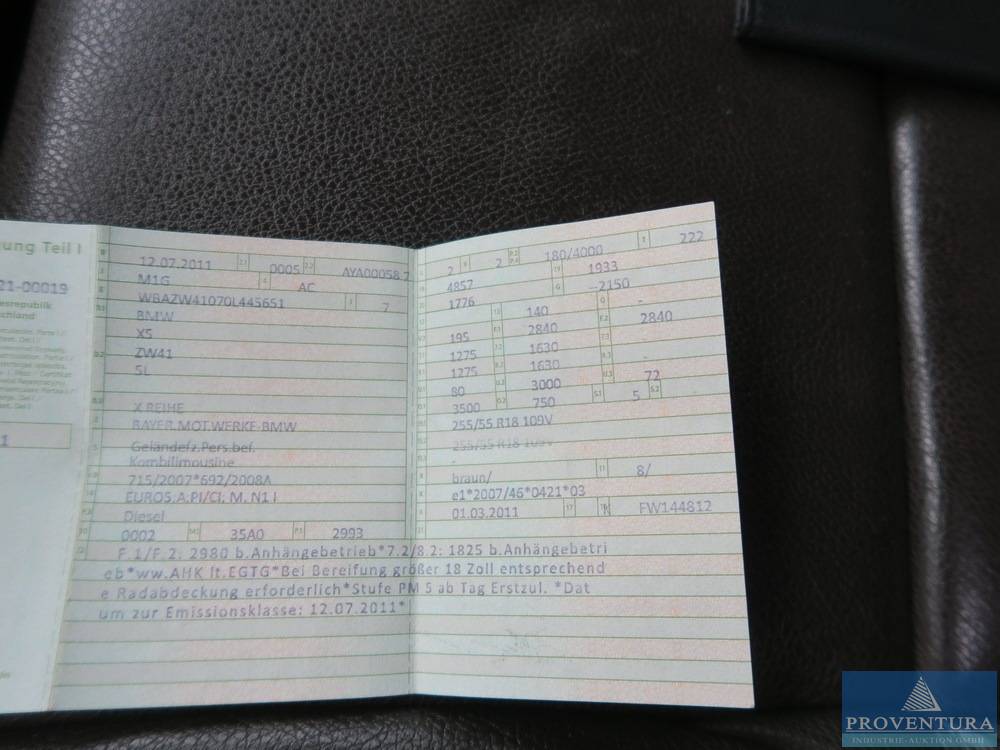 ung Teil I
21-00019
esrepublik
schland
1
12.07.2011 2.1 0005 2.2 AYA00058 7
M1G AC
WBAZW41070L445651 7
BMW
X5
ZW41
5L
X REIHE
BAYER.MOT.WERKE-BMW
Geländefz.Pers.bef.
Kombilimousine
715/2007*692/2008A
EURO5.A:PI/CI, M, N1 I
Diesel
0002 35A0 P.1 2993
2 2 180/4000 222
4857 1933
1776 —2150
140 -
195 2840 2840
1275 1630
1275 1630 -
80 3000 72
3500 750 S.1 5 S.2
255/55 R18 109V
255/55 R18 109V
-
braun/ 8/
e1*2007/46*0421*03
01.03.2011 FW144812
F.1/F.2: 2980 b.Anhängebetrieb*7.2/8.2: 1825 b.Anhängebetri
eb*ww.AHK lt.EGTG*Bei Bereifung größer 18 Zoll entsprechend
e Radabdeckung erforderlich*Stufe PM 5 ab Tag Erstzul. *Dat
um zur Emissionsklasse: 12.07.2011*
PROVENTURA
INDUSTRIE-AUKTION GMBH